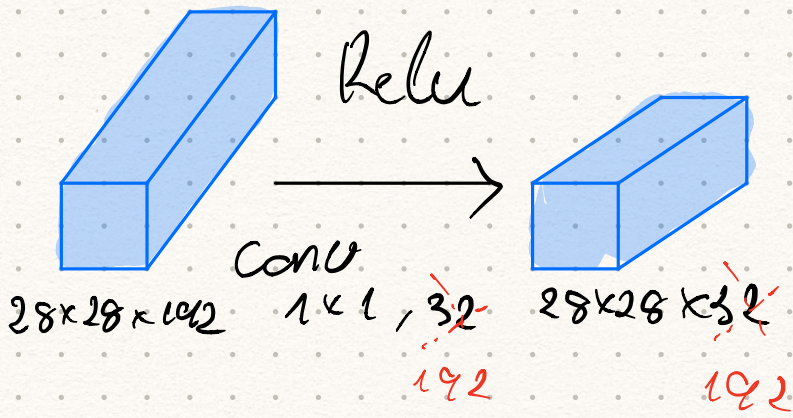 Relu
conv
28×28×192 1×1 , 32 28×28×32
192 192